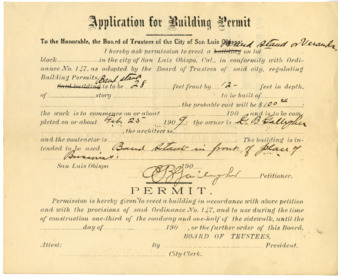 Application for Building Permit
To the Honorable, the Board of Trustees of the City of San Luis Obispo: Band Stand or Veranda
I hereby ask permission to erect a building on lot
block, in the city of San Luis Obispo, Cal., in conformity with Ordi-
nance No. 147, as adopted by the Board of Trustees of said city, regulating
Building Permits. Band Stand
Said building is to be 28 feet front by 12 feet in depth,
of story to be built of
the probable cost will be $100
the work is to commence on or about 190 and is to be com-
pleted on or about Feb 25 190 9, the owner is E. B. Gallagher
the architect is
and the contractor is The building is in-
tended to be used Band Stand in front of place of
Business
San Luis Obispo 190
E B Gallagher Petitioner.
PERMIT.
Permission is hereby given to erect a building in accordance with above petition
and with the provisions of said Ordinance No. 147, and to use during the time
of construction one-third of the roadway and one-half of the sidewalk, until the
day of 190 , or the further order of this Board.
BOARD OF TRUSTEES,
Attest: By President.
City Clerk.